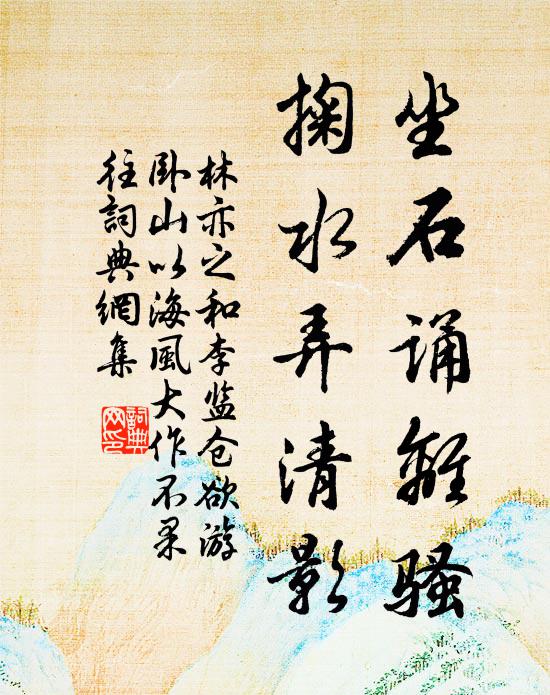 坐石诵離骚
掬水弄清影
林亦之和李监仓欲游
卧山以海風大作不果
往詞典網集
詞典
网印